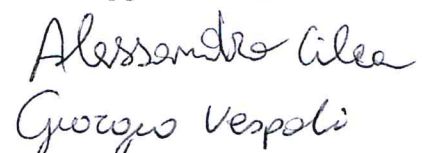 Alessandro Cilea
Giorgio Vespoli